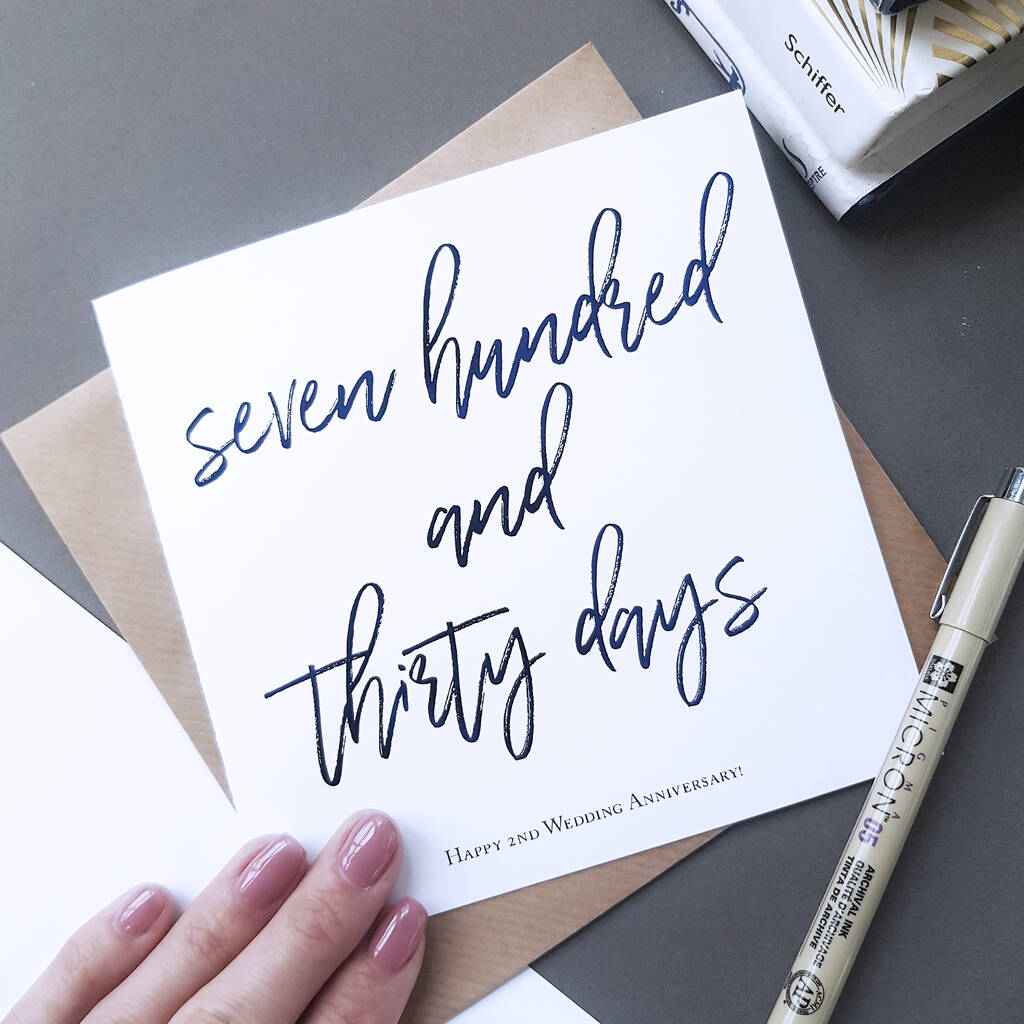 Schiffer
seven hundred
and
thirty days
Happy 2nd Wedding Anniversary!
PIGMA
MICRON™ 05
ARCHIVAL INK
QUALITÉ D'ARCHIVAGE
TINTA DE ARCHIVE